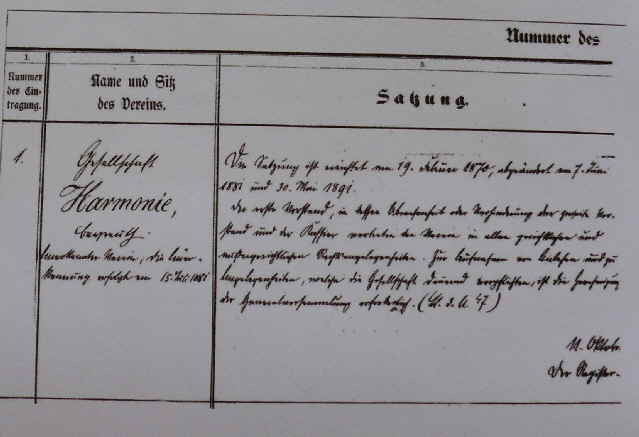 Nummer des
1.
2.
3.
Nummer
der Ein-
tragung.
Name und Sitz
des Vereins.
Satzung.
1.
Gesellschaft
Harmonie,
Bayreuth.
Anerkannter Verein, die Aner-
kennung erfolgte am 15. 1881
Die Satzung ist errichtet am 19. Februar 1870, abgeändert am 7. Juni
1881 und 30. Mai 1891.
Der erste Vorstand, in dessen Abwesenheit oder Verhinderung der zweite Vor-
stand und der Kassier vertreten den Verein in allen gerichtlichen und
außergerichtlichen Rechtsangelegenheiten. Zur Aufnahme von Anlehen und zu
Angelegenheiten, welche die Gesellschaft dauernd verpflichten, ist die Genehmigung
der Generalversammlung erforderlich. (Bl. d. A. 47)
11. Oktob.
Der Register-